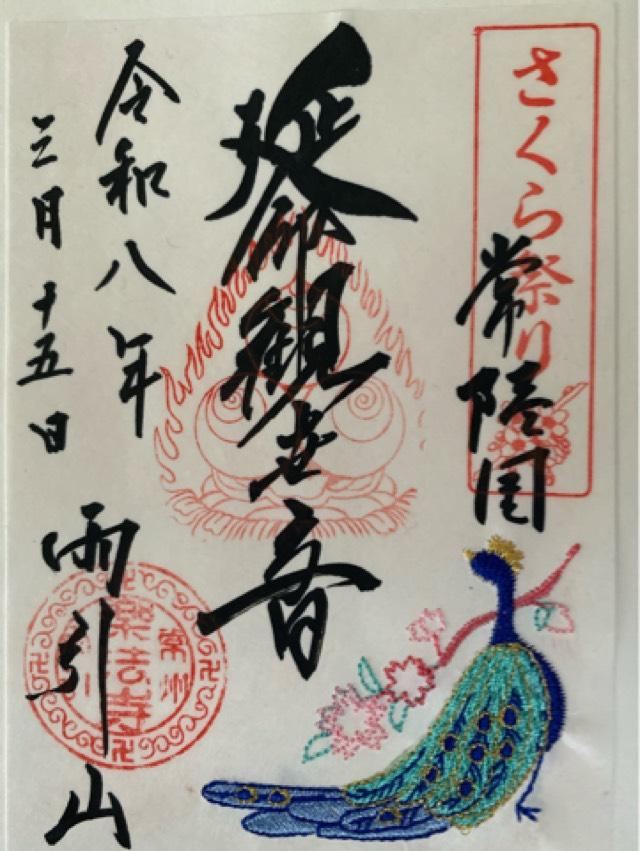 さくら祭り
常陸国
延命観世音
令和八年
三月十五日
雨引山
常州
楽法寺